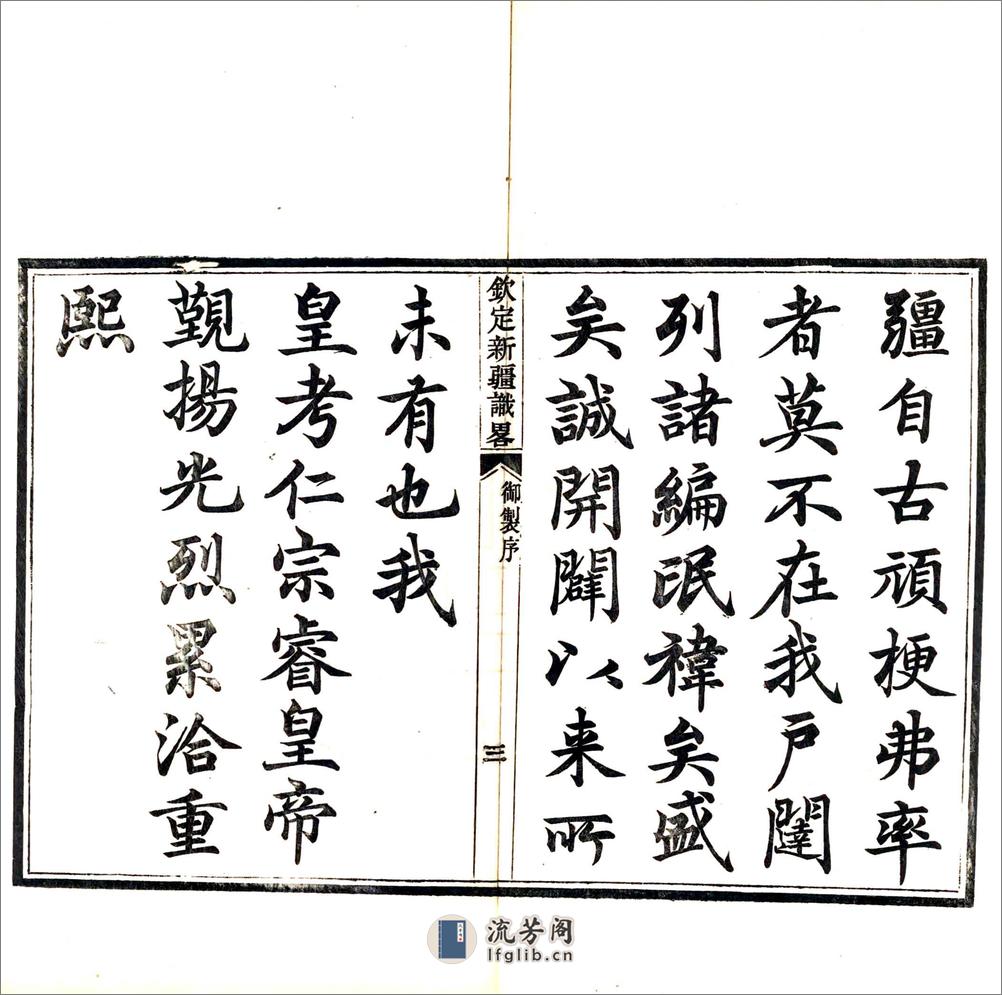 疆自古頑梗弗率
者莫不在我戶闥
列諸編氓禕矣盛
矣誠開闢以来所
欽定新疆識畧
御製序
三
未有也我
皇考仁宗睿皇帝
觐揚光烈累洽重
熙
流芳阁
lfglib.cn